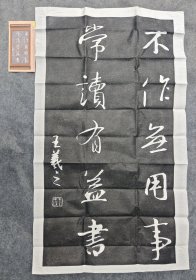 不作無用事
常讀有益書
王羲之